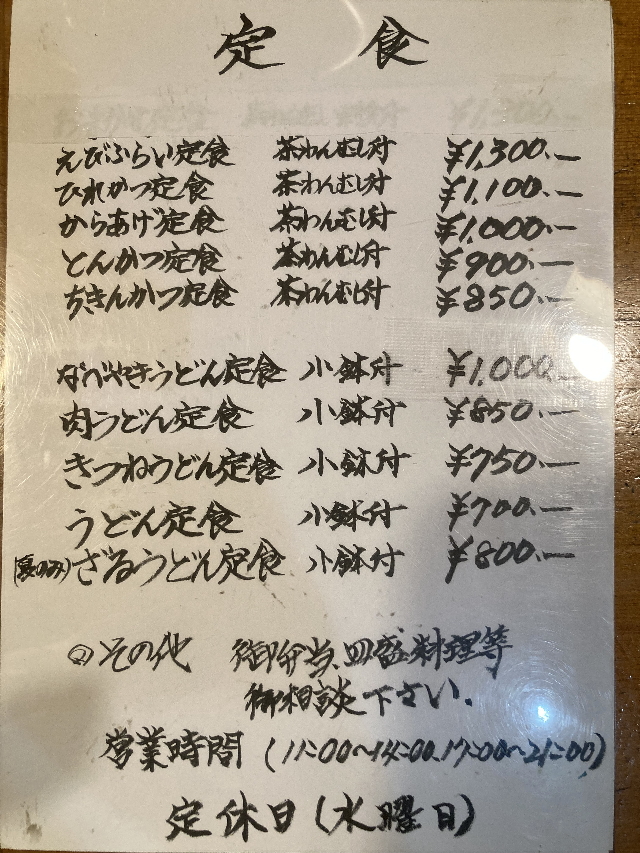 定食
えびふらい定食 茶わんむし付 ¥1,300.ー
ひれかつ定食 茶わんむし付 ¥1,100.ー
からあげ定食 茶わんむし付 ¥1,000.ー
とんかつ定食 茶わんむし付 ¥900.ー
ちきんかつ定食 茶わんむし付 ¥850.ー
なべやきうどん定食 小鉢付 ¥1,000.ー
肉うどん定食 小鉢付 ¥850.ー
きつねうどん定食 小鉢付 ¥750.ー
うどん定食 小鉢付 ¥700.ー
(夏のみ)ざるうどん定食 小鉢付 ¥800.ー
◎その他 御弁当、皿盛料理等
御相談下さい。
営業時間 (11:00〜14:00、17:00〜21:00)
定休日(水曜日)